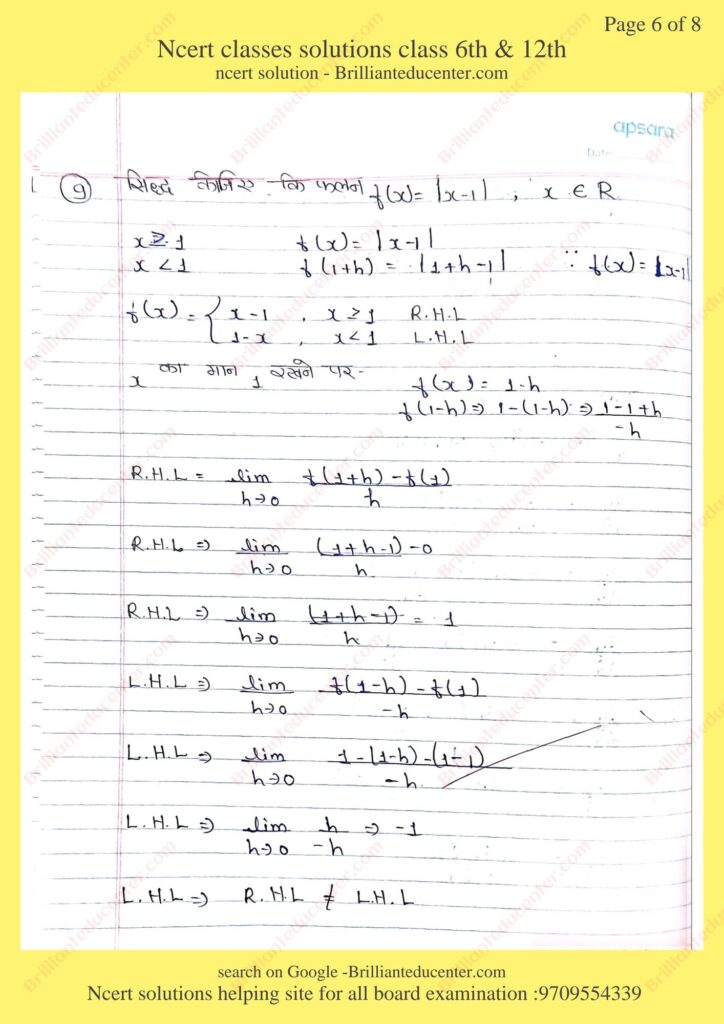 Page 6 of 8
Ncert classes solutions class 6th & 12th
ncert solution - Brillianteducenter.com
apsara
Date
9 सिद्ध कीजिए कि फलन f(x) = |x-1| , x ∈ R
x ≥ 1 f(x) = |x-1|
x < 1 f(1+h) = |1+h-1| ∵ f(x) = |x-1|
f(x) = { x-1 , x ≥ 1 R.H.L
1-x , x < 1 L.H.L
x का मान 1 रखने पर-
f(x) = 1-h
f(1-h) ⇒ 1-(1-h) ⇒ 1-1+h
-h
R.H.L = lim f(1+h) - f(1)
h→0 h
R.H.L ⇒ lim (1+h-1)-0
h→0 h
R.H.L ⇒ lim (1+h-1) = 1
h→0 h
L.H.L ⇒ lim f(1-h) - f(1)
h→0 -h
L.H.L ⇒ lim 1-(1-h)-(1-1)
h→0 -h
L.H.L ⇒ lim h ⇒ -1
h→0 -h
L.H.L ⇒ R.H.L ≠ L.H.L
search on Google -Brillianteducenter.com
Ncert solutions helping site for all board examination :9709554339
Brillianteducenter.com